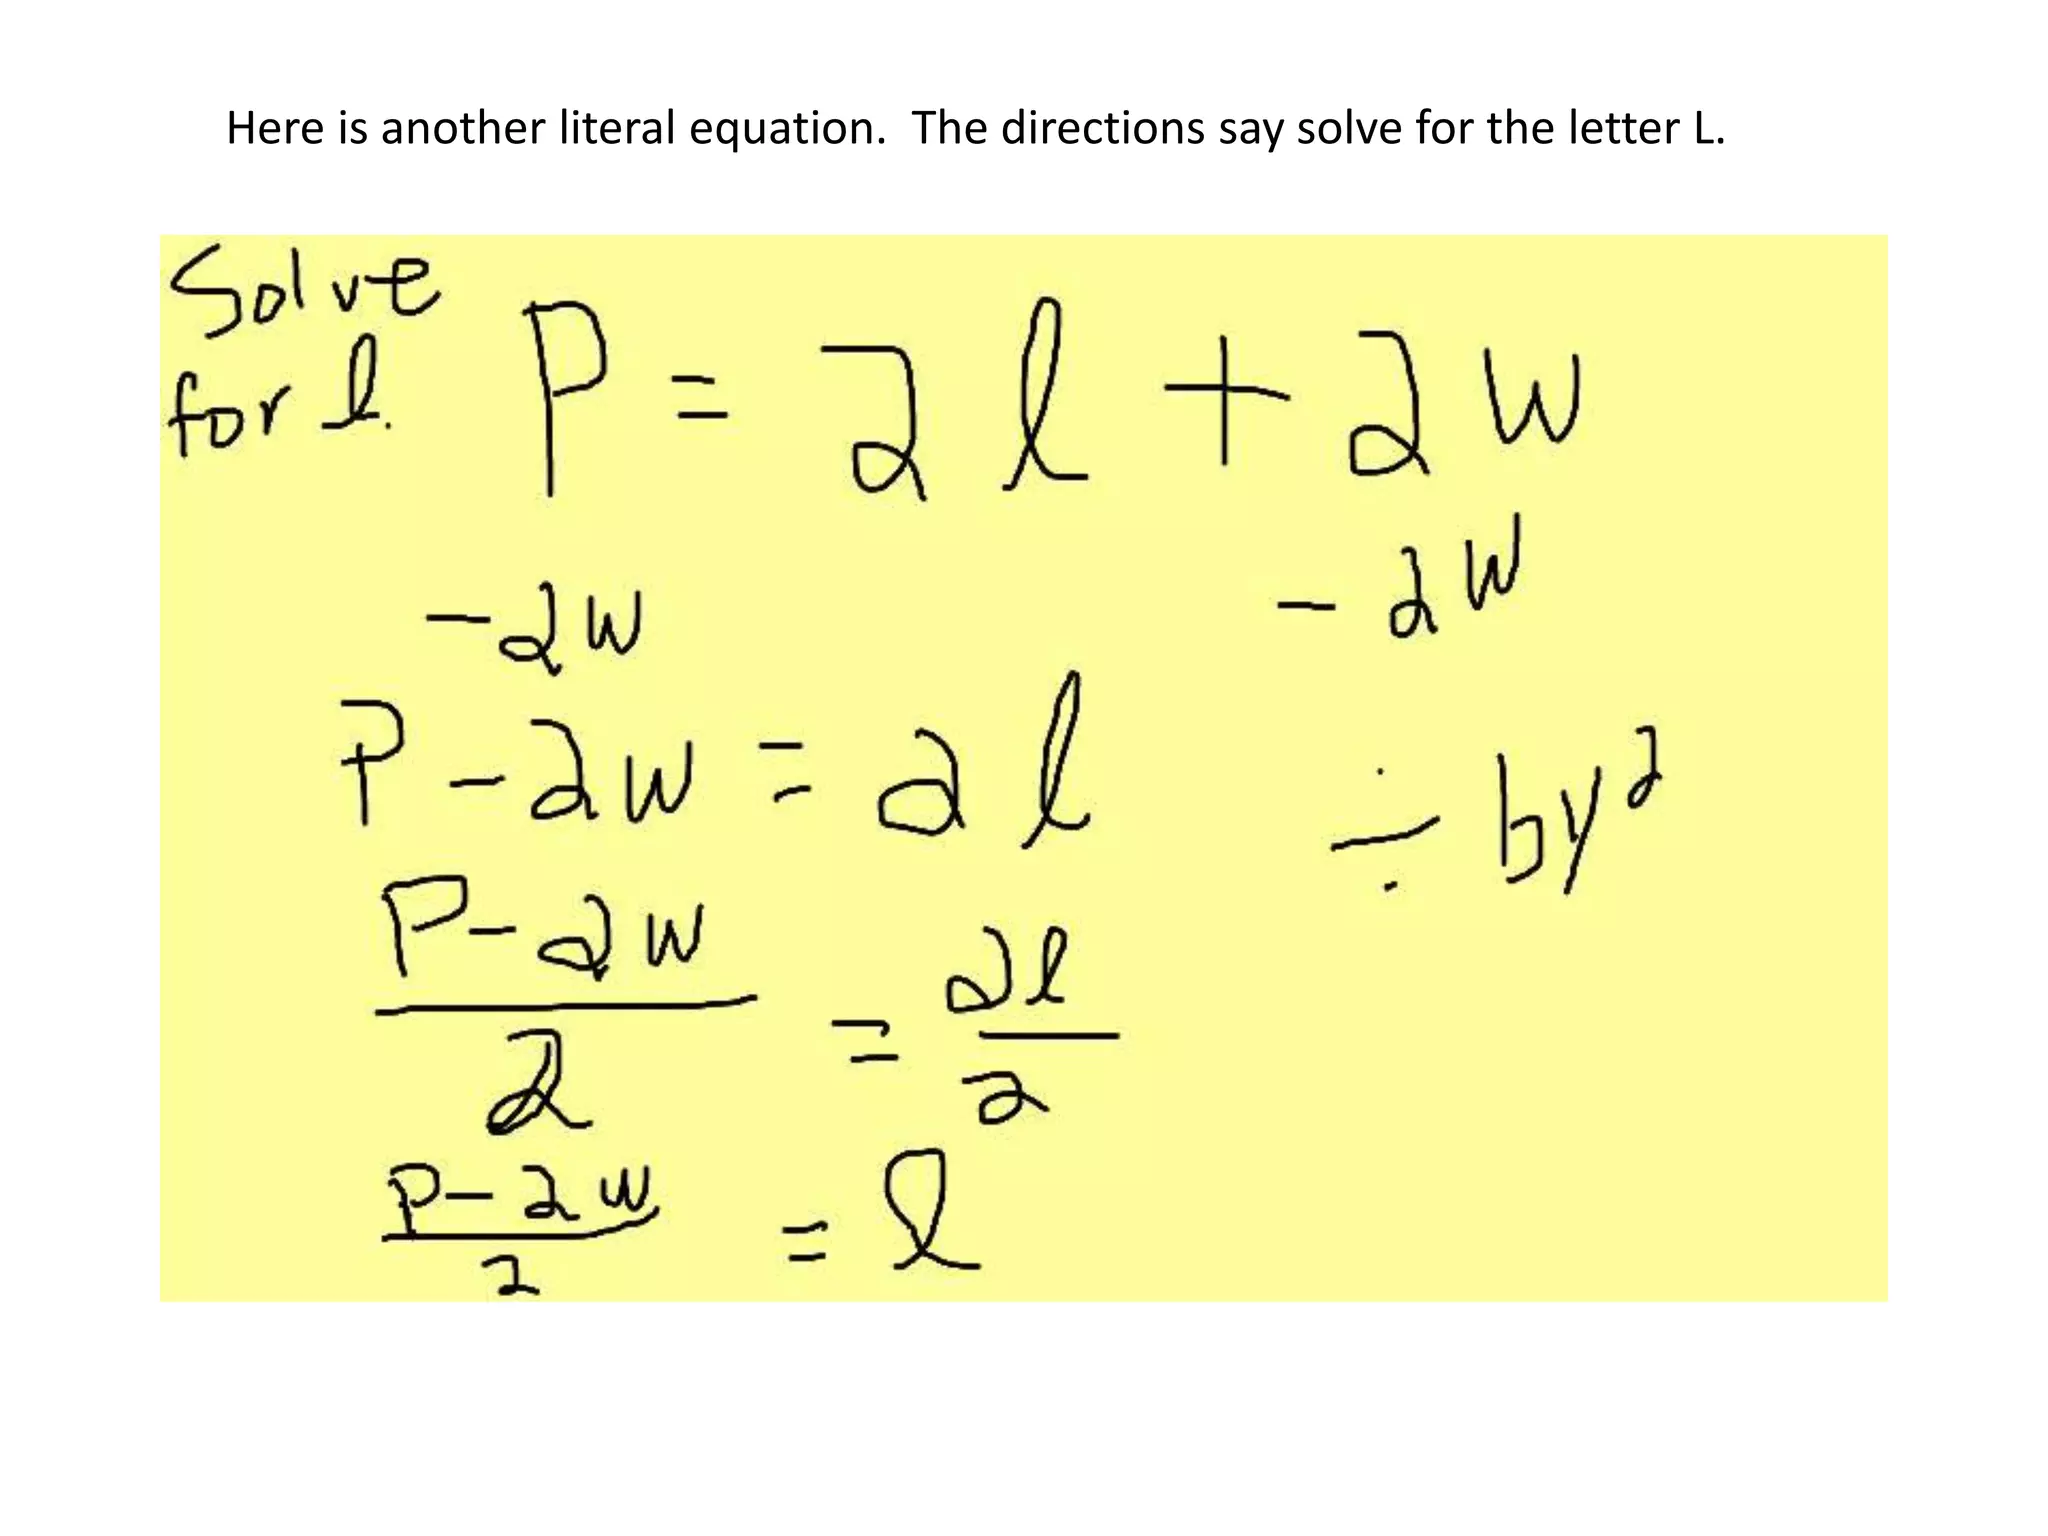 Here is another literal equation. The directions say solve for the letter L.
Solve
for l.
P = 2l + 2w
-2w - 2w
P - 2w = 2l ÷ by 2
P-2w
2
=
2l
2
P-2w
2
= l